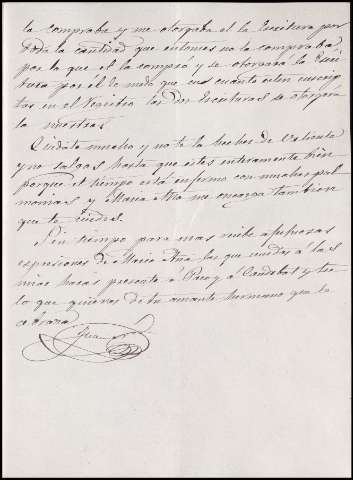 la compraba y me otorgaba el la Escritura por
toda la cantidad que entonces no la compraba
por lo que el la compró y se otorgara la Escri
tura por él de modo que en cuanto esten inscrip
tas en el las dos Escrituras se otorgara
la nuestra
Cuidate mucho y no te la heches de
y no salgas hasta que estes enteramente bien
porque el tiempo está enfermo con muchas pul
monias y Maria Ana me encarga tambien
que te cuides.
Sin tiempo para mas recibe afectuosas
espresiones de Maria Ana las que unidas á las
mias harás presente á Paco y á Candelas y tu
lo que quieras de tu amante hermano que te
Juan